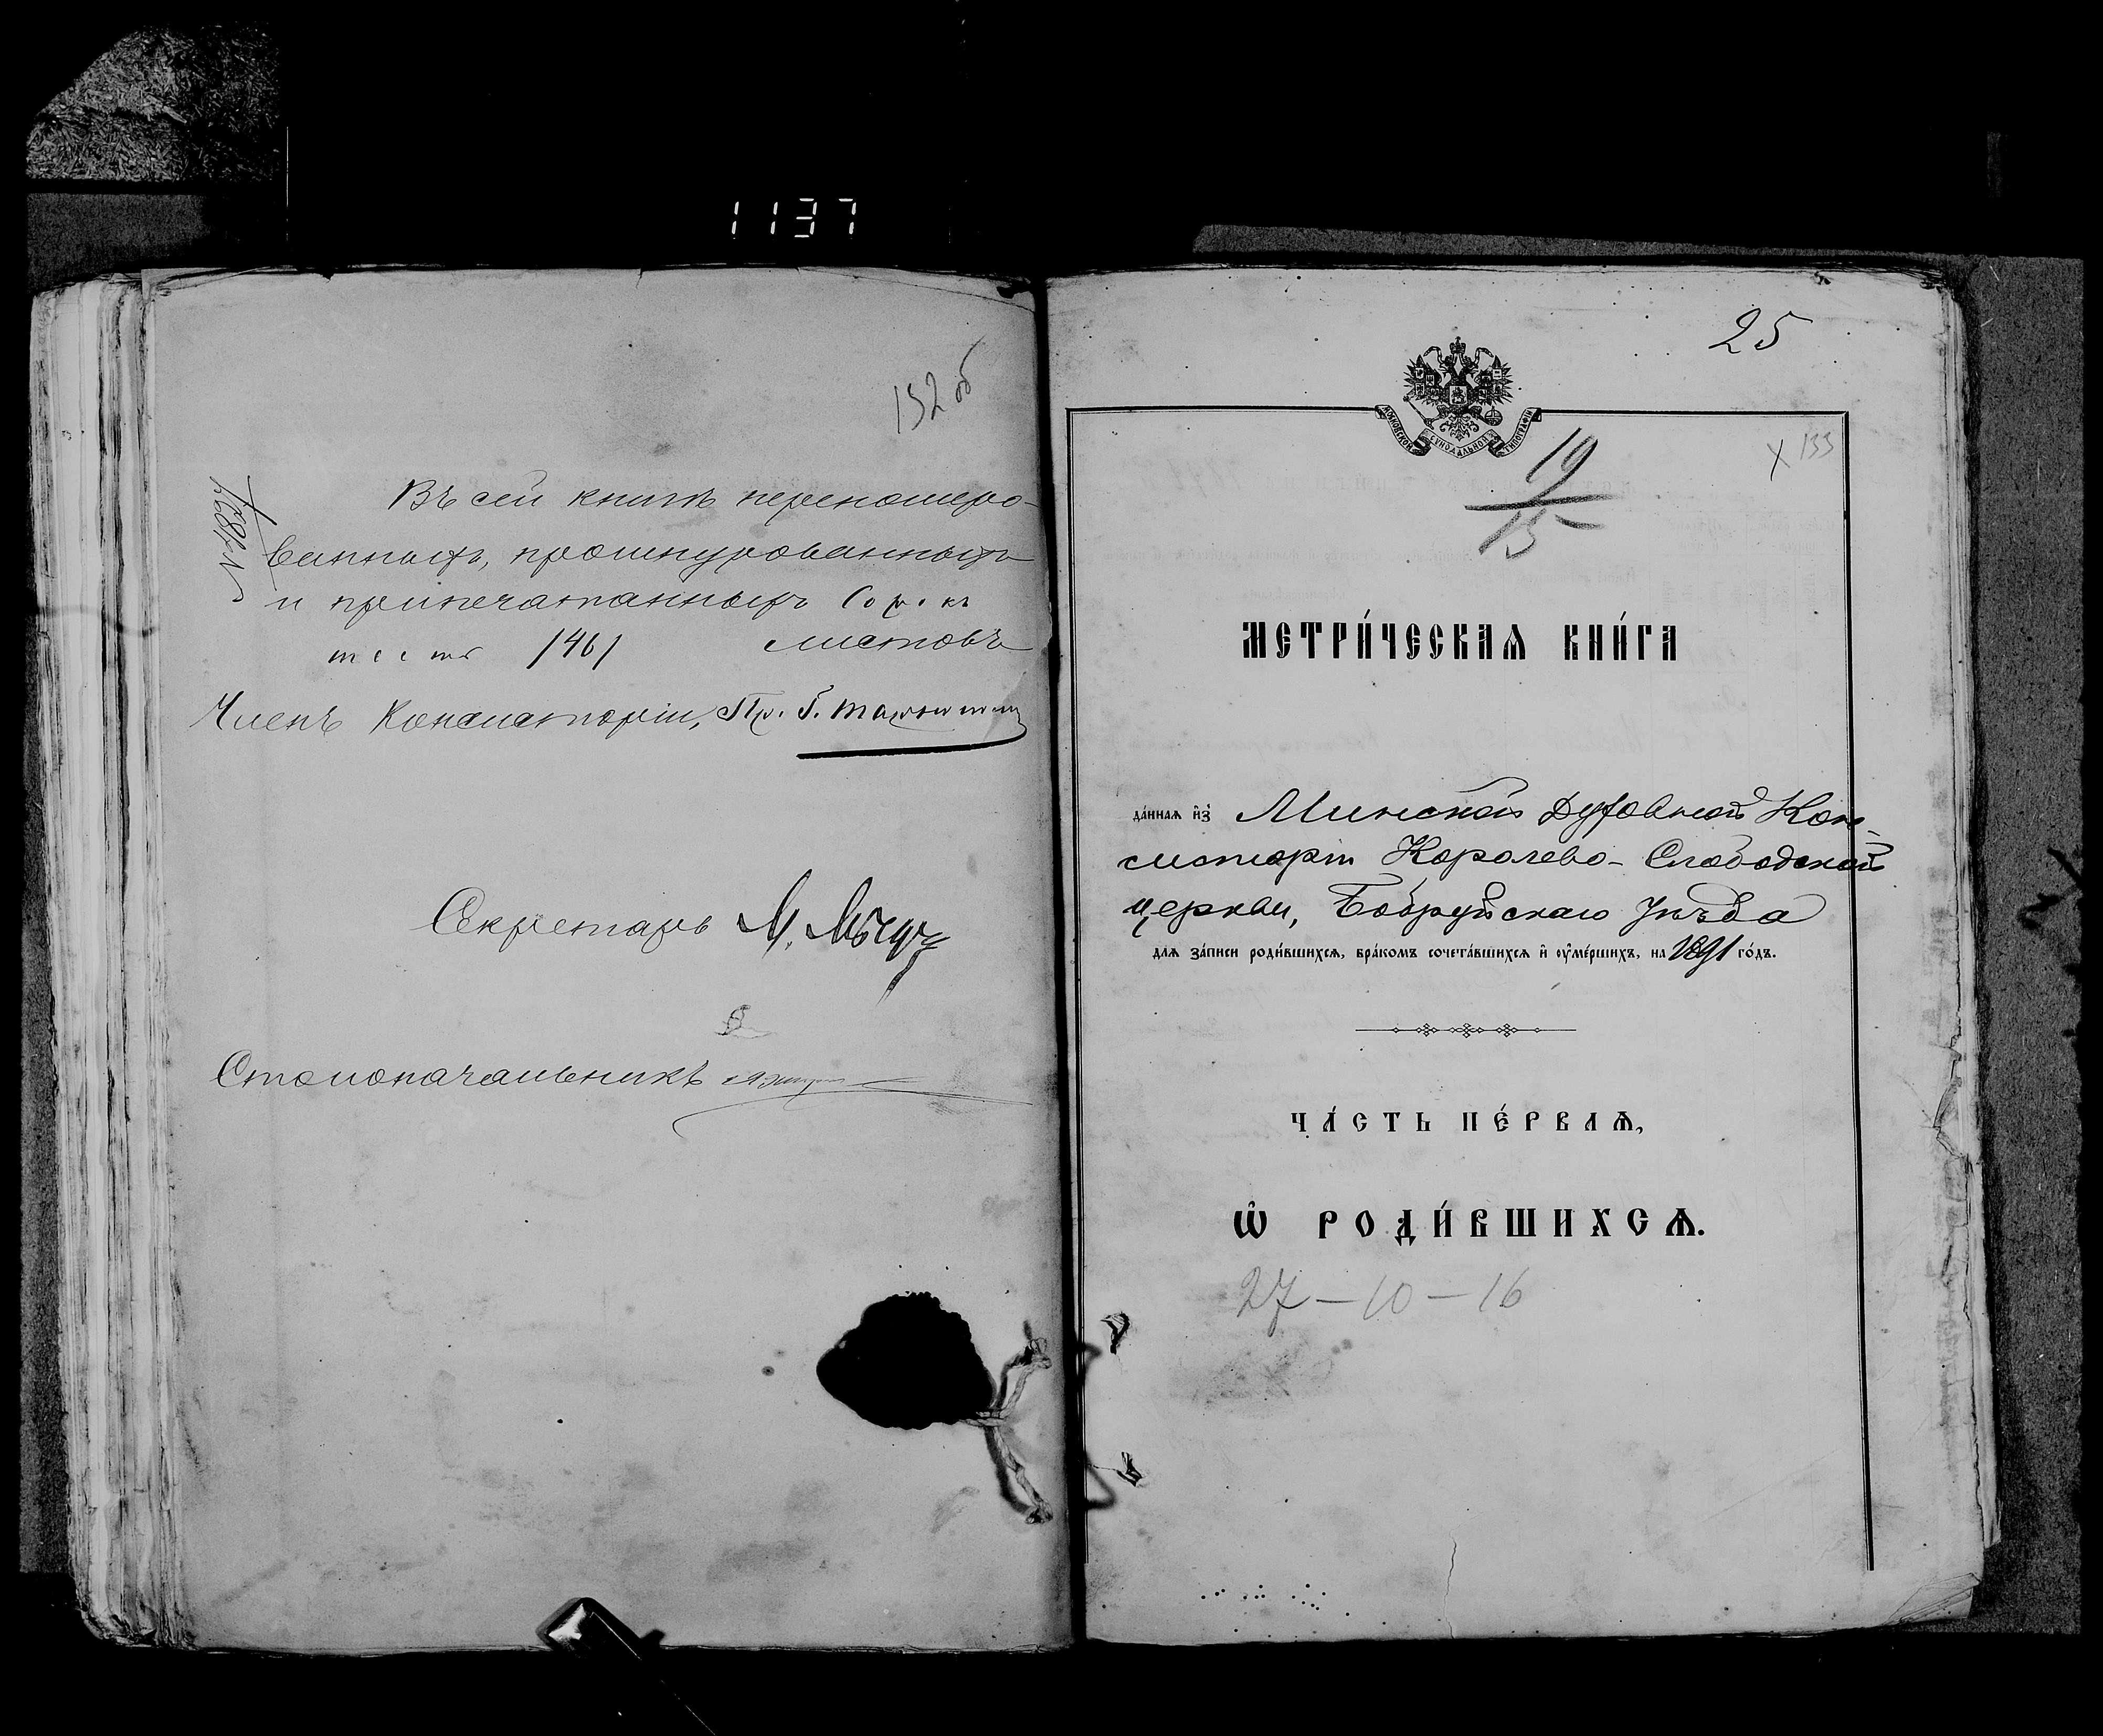 1137
152 об
№ 1827
Въ сей книгѣ переномеро-
ванныхъ, прошнурованныхъ
и припечатанныхъ Сорокъ
шесть /46/ листовъ
Членъ Консисторіи, Пр. Г.
Секретарь М.
Столоначальникъ
25
МОСКОВСКОЙ СѴНОДАЛЬНОЙ ТИПОГРАФІИ
19
15
X 133
МЕТРИ́ЧЕСКАѦ КНИ́ГА
да́ннаѧ и҆з̾ Минской Духовной Кон-
систоріи Королево-Слободской
церкви, Бобруйскаго Уѣзда
длѧ за́писи роди́вшихсѧ, бра́комъ сочета́вшихсѧ и҆ ᲂу҆ме́ршихъ, на 1891 го́дъ.
ЧА́СТЬ ПЕ́РВАѦ,
Ѡ҆ РОДИ́ВШИХСѦ.
27-10-16